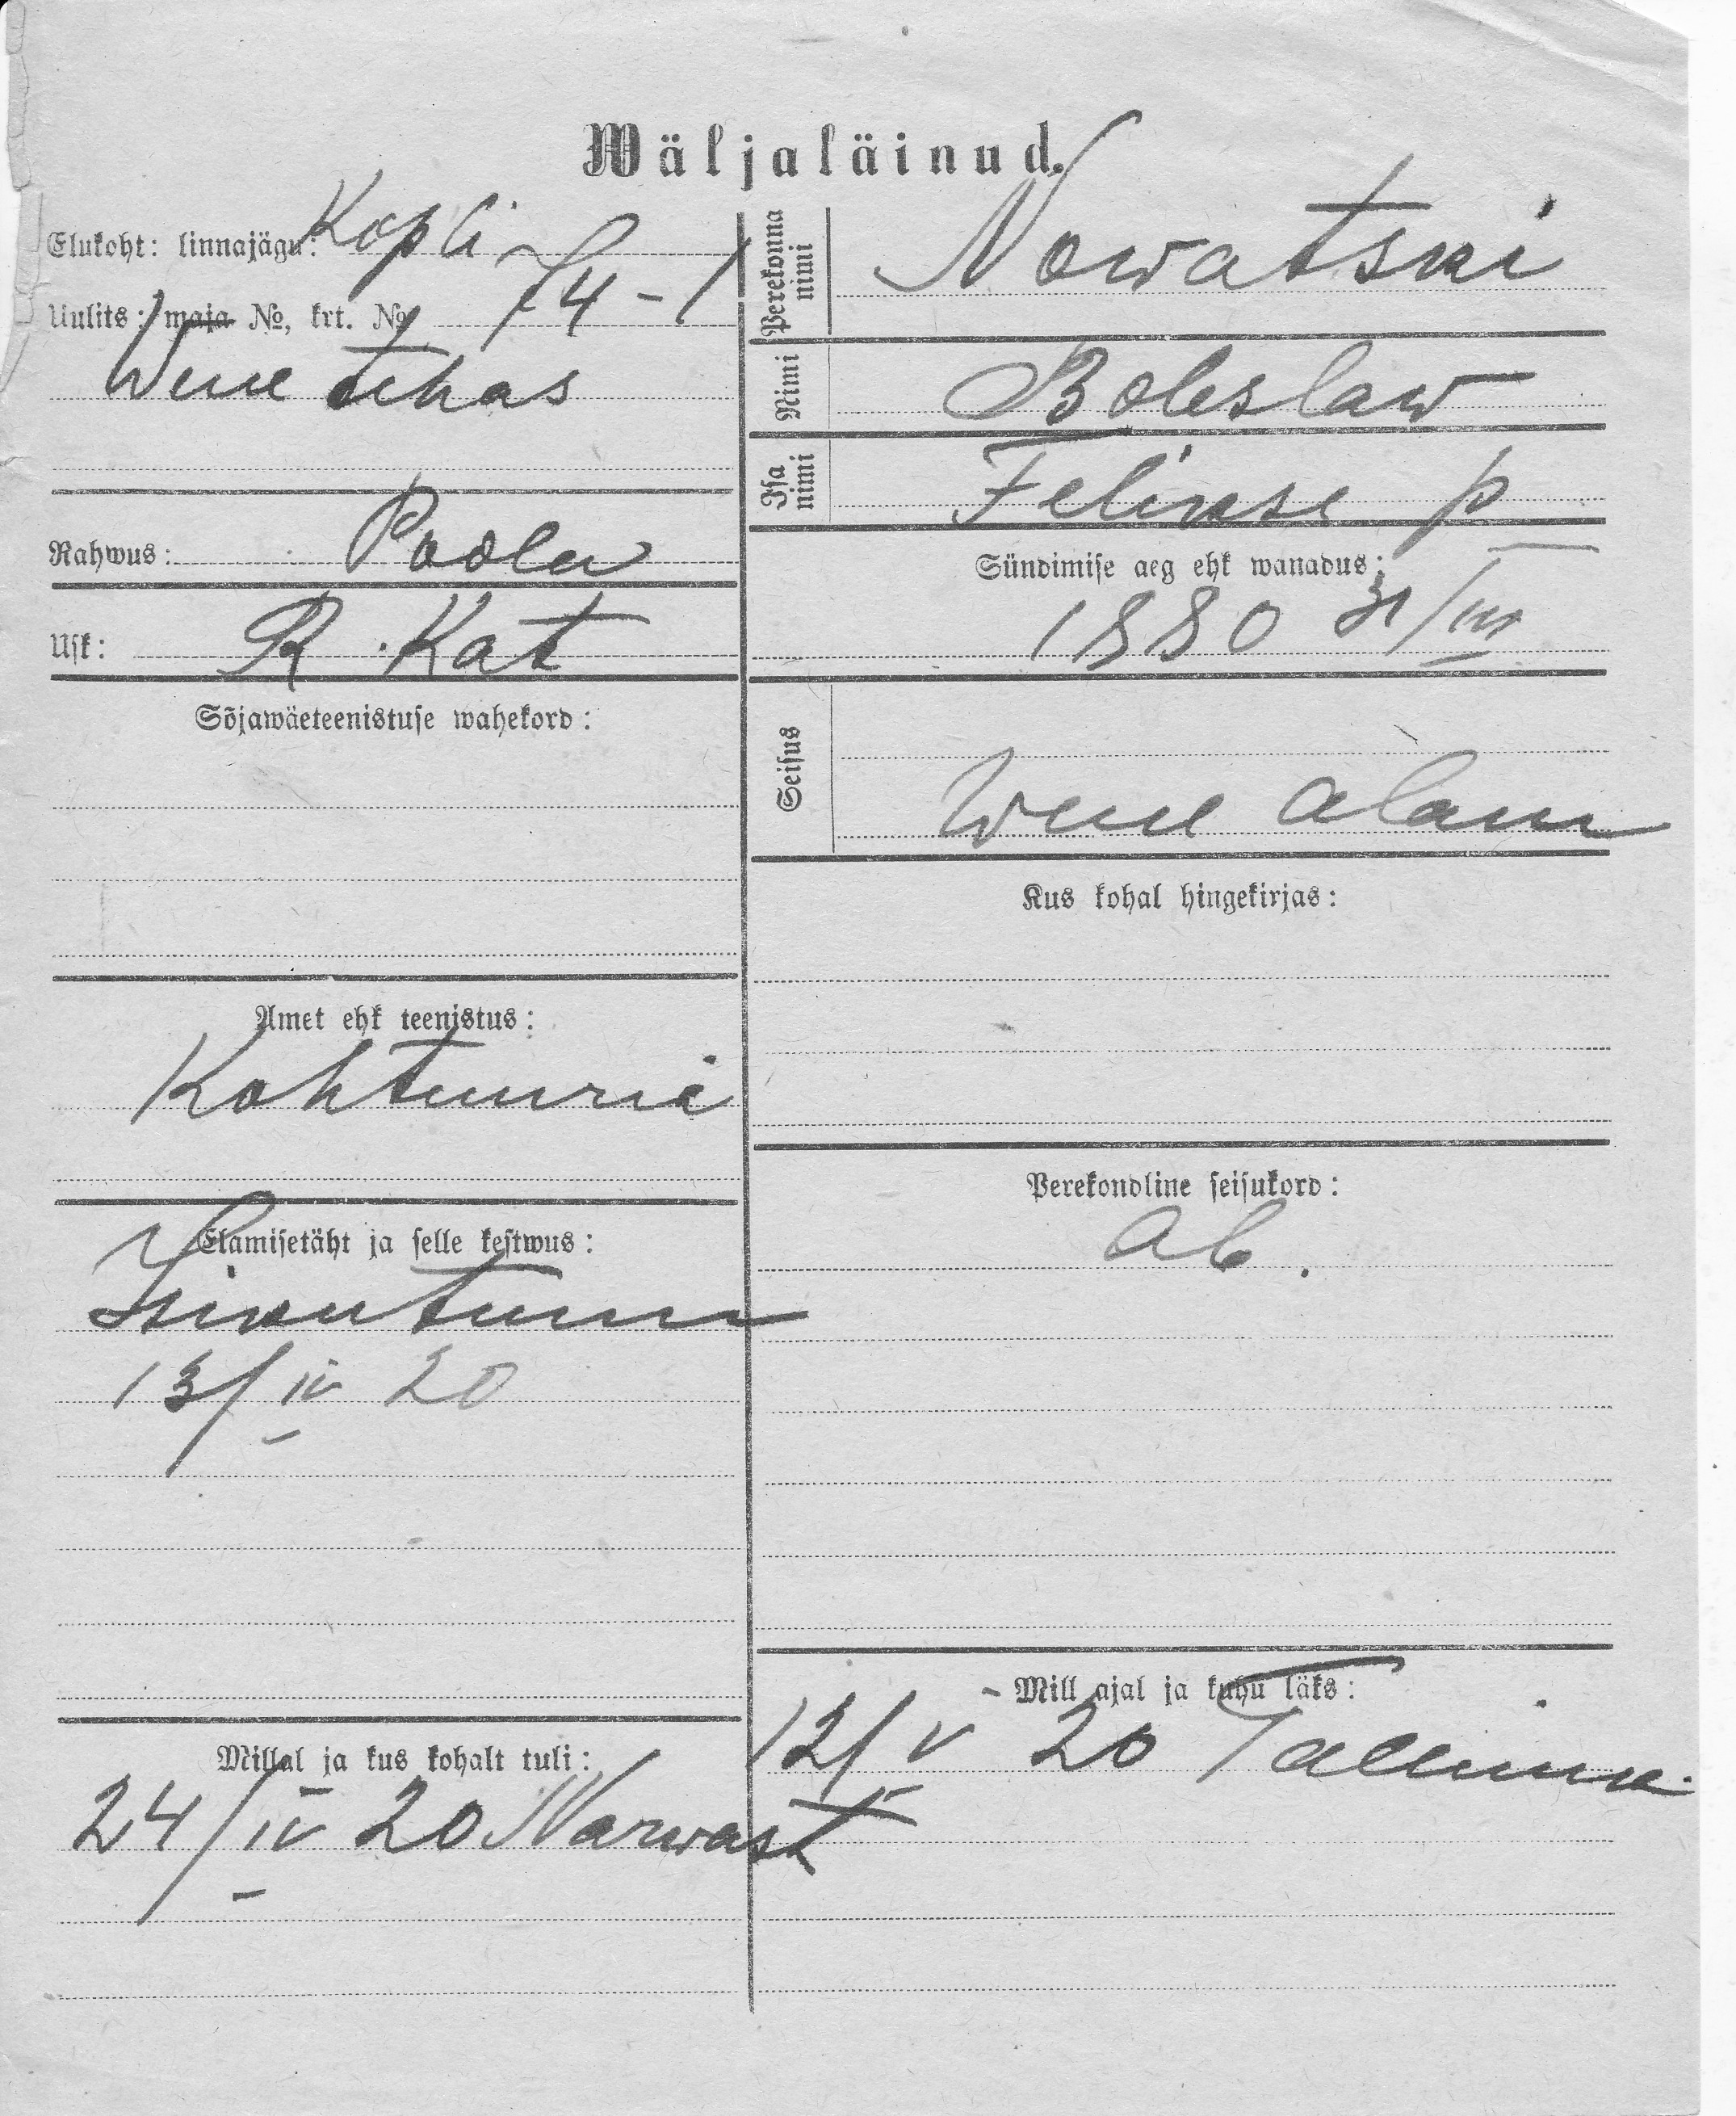 Wäljaläinud.
Elukoht: linnajägu: Kopli
Uulits: maja №, krt. № 74-1
Wene tehas
Rahwus: Poola
Usk: R. Kat
Sõjawäeteenistuse wahekord:
Amet ehk teenistus:
Kohtuurie
Elamisetäht ja selle kestwus:
Isikutunn
13/IV 20
Millal ja kus kohalt tuli:
24/IV 20 Narwast
Perekonna nimi Nowatski
Nimi Boleslaw
Isa nimi Felikse p
Sündimise aeg ehk wanadus:
1880 31/III
Seisus
Wene alam
Kus kohal hingekirjas:
Perekondline seisukord:
Ab.
Mill ajal ja kuhu läks:
12/V 20 Tallinna